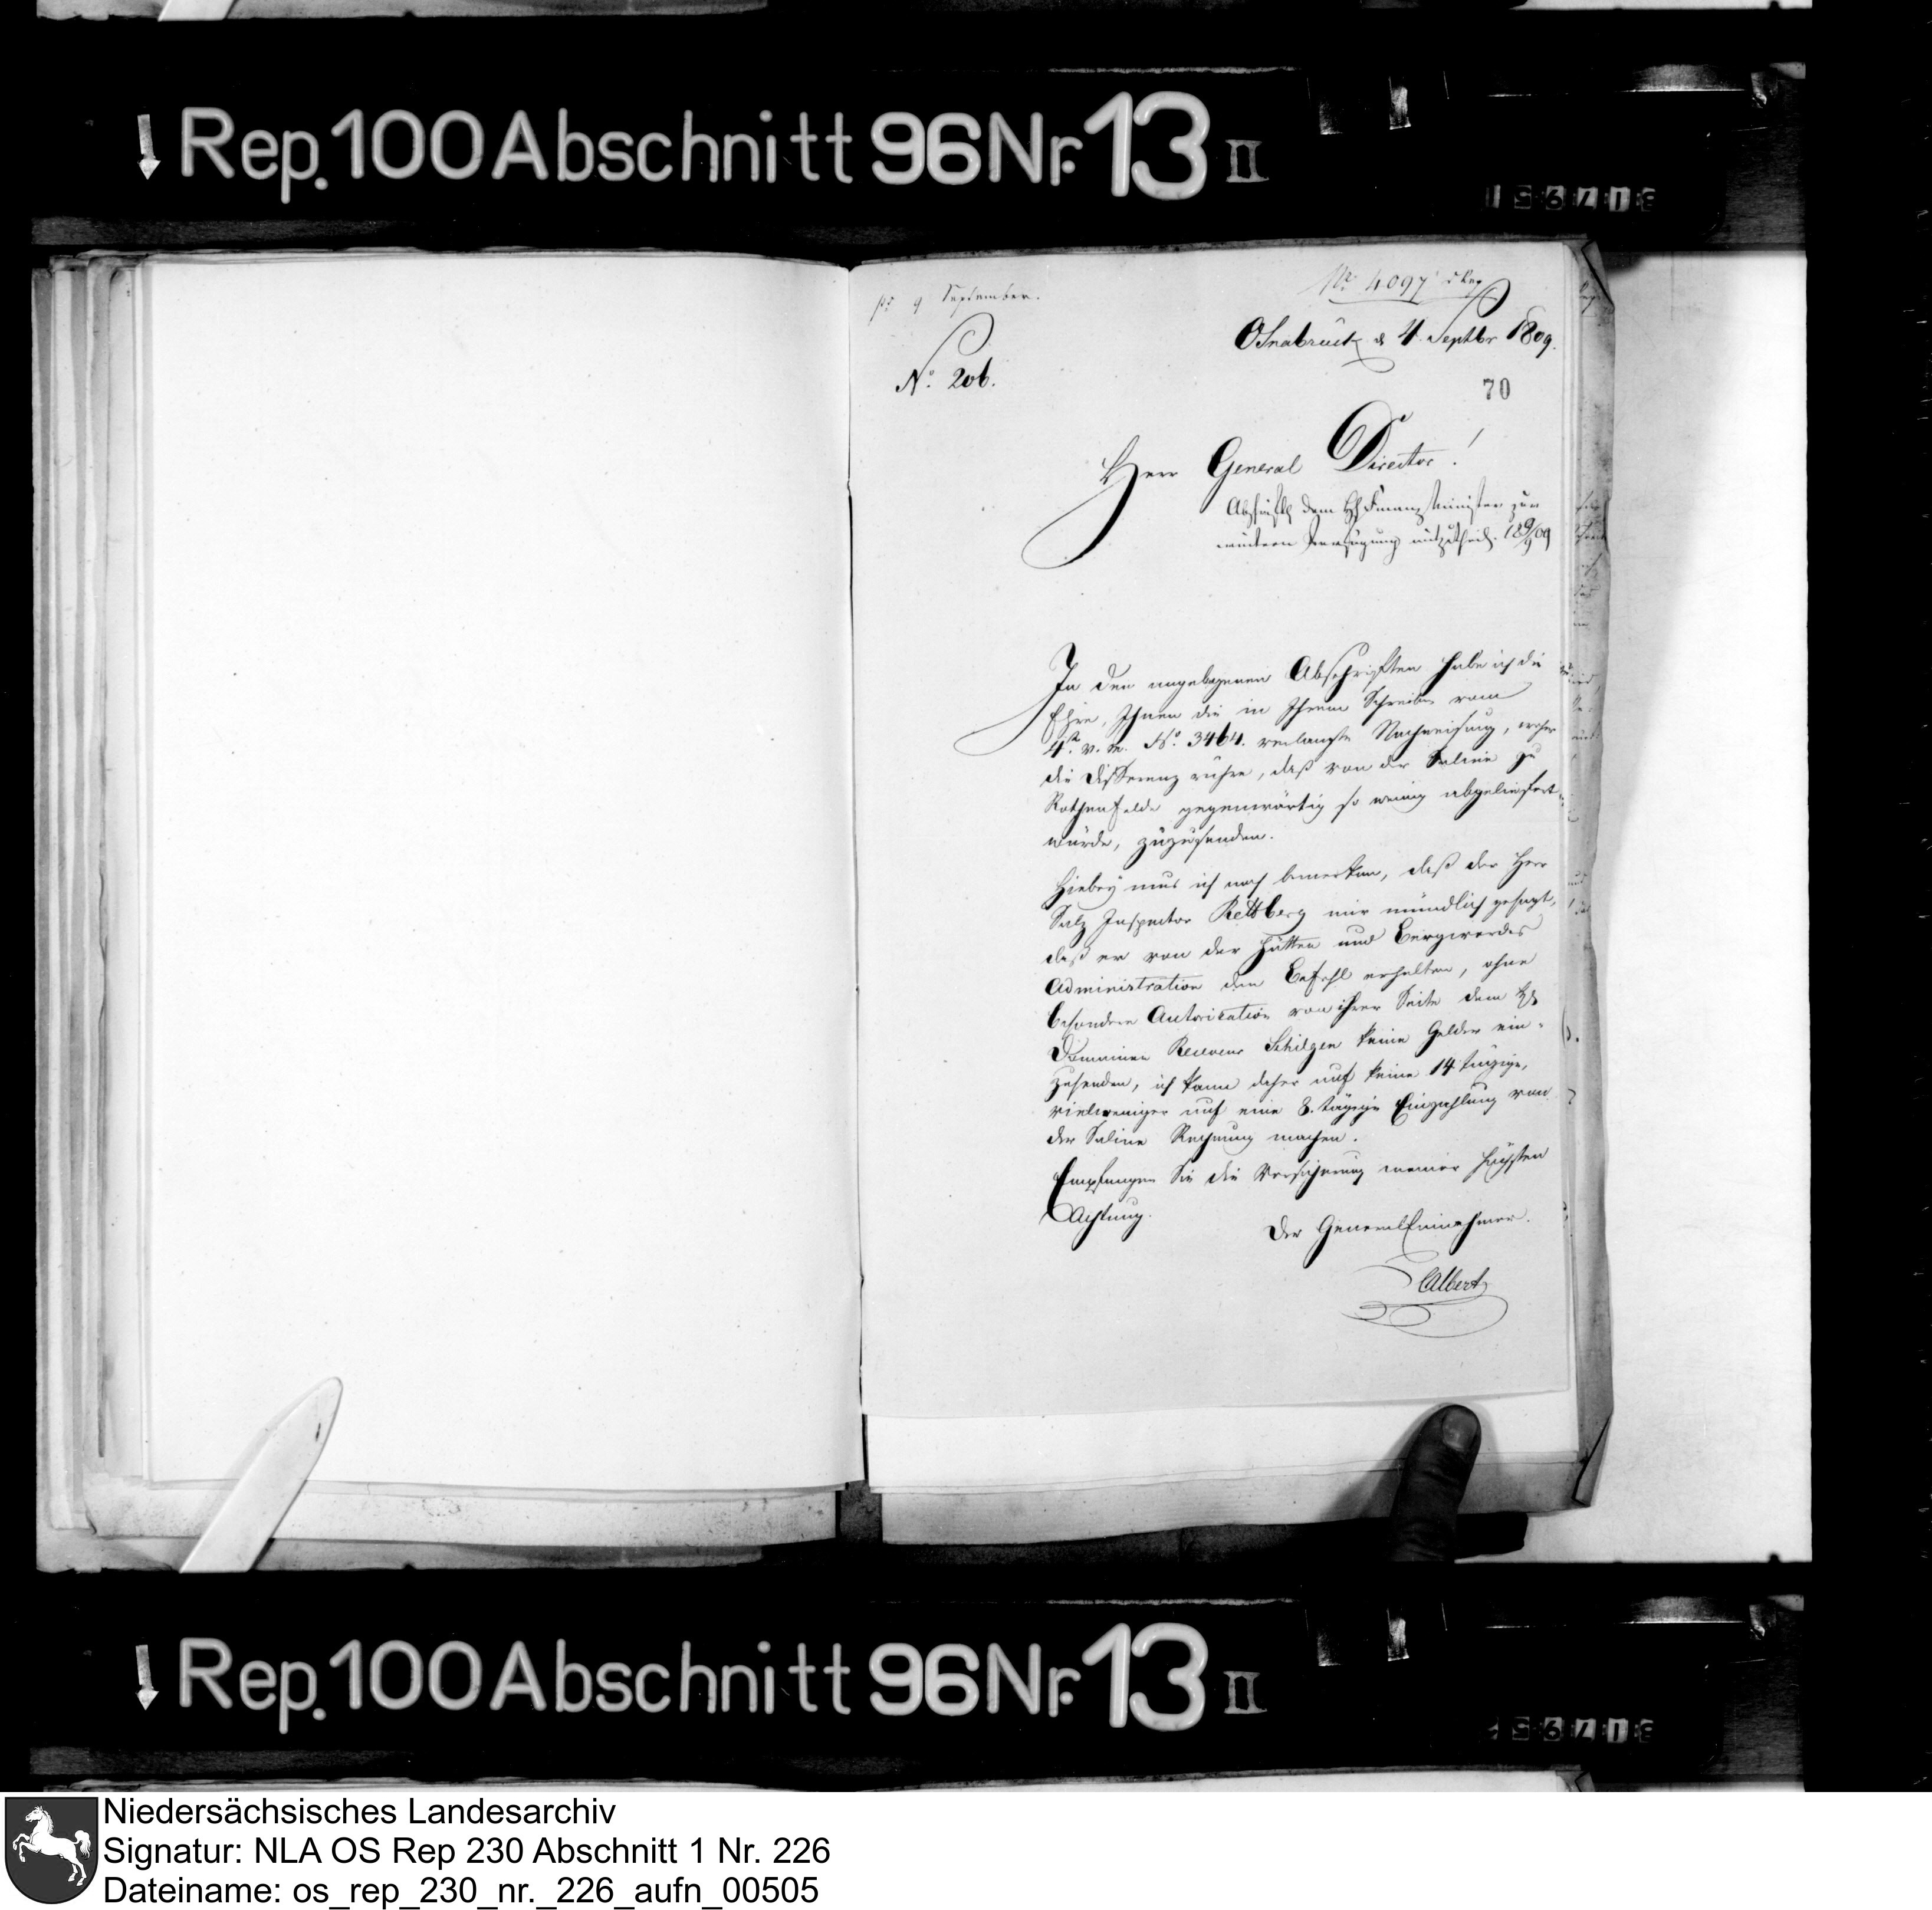 Rep. 100 Abschnitt 96 Nr. 13 II
pr 9 September.
No 4097
Osnabrück d 4. Septbr 1809.
No. 206.
70
Herr General Director!
Abschriftl dem H Finanz Minister zur
weitern Verfügung mitzutheil. 18 9/9 09
In den angebogenen Abschriften habe ich die
Ehre, Ihnen die in Ihrem Schreiben vom
4t. v. M. No. 3464. verlangte Nachweisung, woher
die Differenz rühre, daß von der Saline zu
Rothenfelde gegenwärtig so wenig abgeliefert
würde, zuzusenden.
Hiebey mus ich noch bemerken, daß der Herr
Salz Inspector Rettberg mir mündlich gesagt,
daß er von der Hütten und Bergwerckes
Administration den Befehl erhalten, ohne
besondere Autorisation von ihrer Seite dem H
Domainen Receveur Schilgen keine Gelder ein-
zusenden, ich kann daher auf keine 14 tägige,
vielweniger auf eine 8. tägige Einzahlung von
der Saline Rechnung machen.
Empfangen Sie die Versicherung meiner höchsten
Achtung.
Der General Einnehmer.
Albert
Rep. 100 Abschnitt 96 Nr. 13 II
Niedersächsisches Landesarchiv
Signatur: NLA OS Rep 230 Abschnitt 1 Nr. 226
Dateiname: os_rep_230_nr._226_aufn_00505